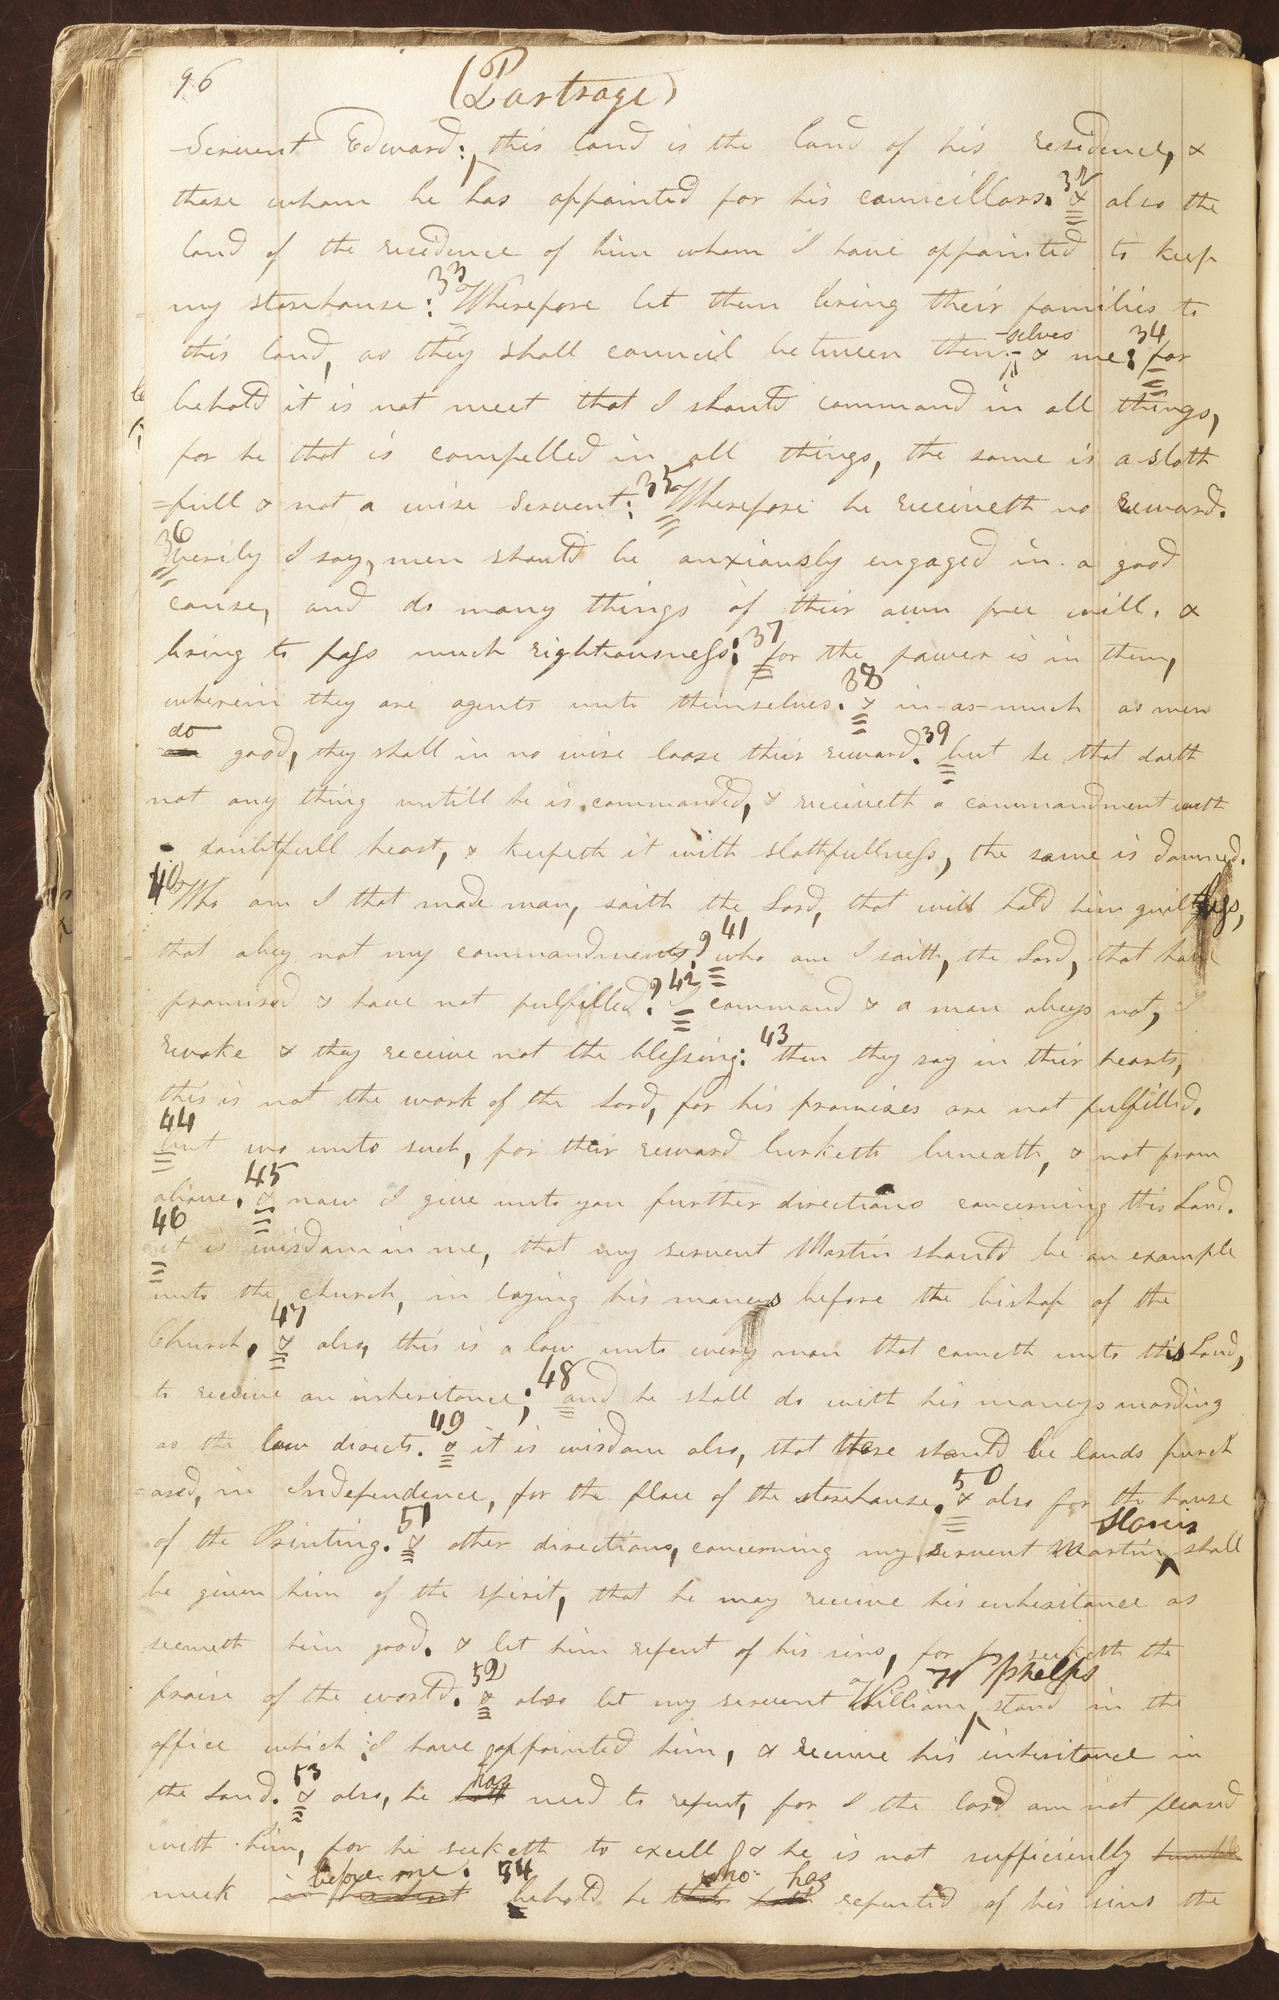 96
(Partrage)
Servent Edward: this land is the land of his residence, &
those whom he has appointed for his councillors. 32 & also the
land of the residence of him whom I have appointed to keep
my storehouse: 33 Wherefore let them bring their families to
this land, as they shall council between them -selves & me: 34 for
behold it is not meet that I should command in all things,
for he that is compelled in all things, the same is a sloth
=full & not a wise servent: 35 Wherefore he receiveth no reward.
36 verily I say, men should be anxiously engaged in a good
cause, and do many things of their own free will, &
bring to pass much rightiousness: 37 for the power is in them,
wherein they are agents unto themselves. 38 & in-as-much as men
do good, they shall in no wise loose their reward. 39 but he that doeth
not any thing untill he is commanded, & receiveth a commandment with
doubtfull heart, & keepeth it with slothfullness, the same is damned.
40 Who am I that made man, saith the Lord, that will hold him guiltless,
that obey not my commandments? 41 who am I saith, the Lord, that have
promised & have not fulfilled? 42 I command & a man obeys not, I
revoke & they receive not the blessing: 43 then they say in their hearts,
this is not the work of the Lord, for his promises are not fulfilled.
44 but wo unto such, for their reward lurketh beneath, & not from
above. 45 & now I give unto you further directions concerning this Land.
46 it is wisdom in me, that my servent Martin should be an example
unto the church, in laying his moneys before the bishop of the
Church. 47 & also, this is a law unto every man that cometh unto this Land,
to receive an inheritance; 48 and he shall do with his moneys according
as the law directs. 49 & it is wisdom also, that there should be lands purch
=ased, in Independence, for the place of the storehouse. 50 & also for the house
of the Printing. 51 & other directions, concerning my servent Martin Harris shall
be given him of the spirit, that he may receive his inheritance as
seemeth him good. & let him repent of his sins, for he seeketh the
praise of the world. 52 & also let my servent William W Phelps stand in the
office which I have appointed him, & receive his inheritance in
the Land. 53 & also, he hath has need to repent, for I the Lord am not pleased
with him, for he seeketh to excell & he is not sufficiently humble
meek before me. 54 behold he who has repented of his sins the